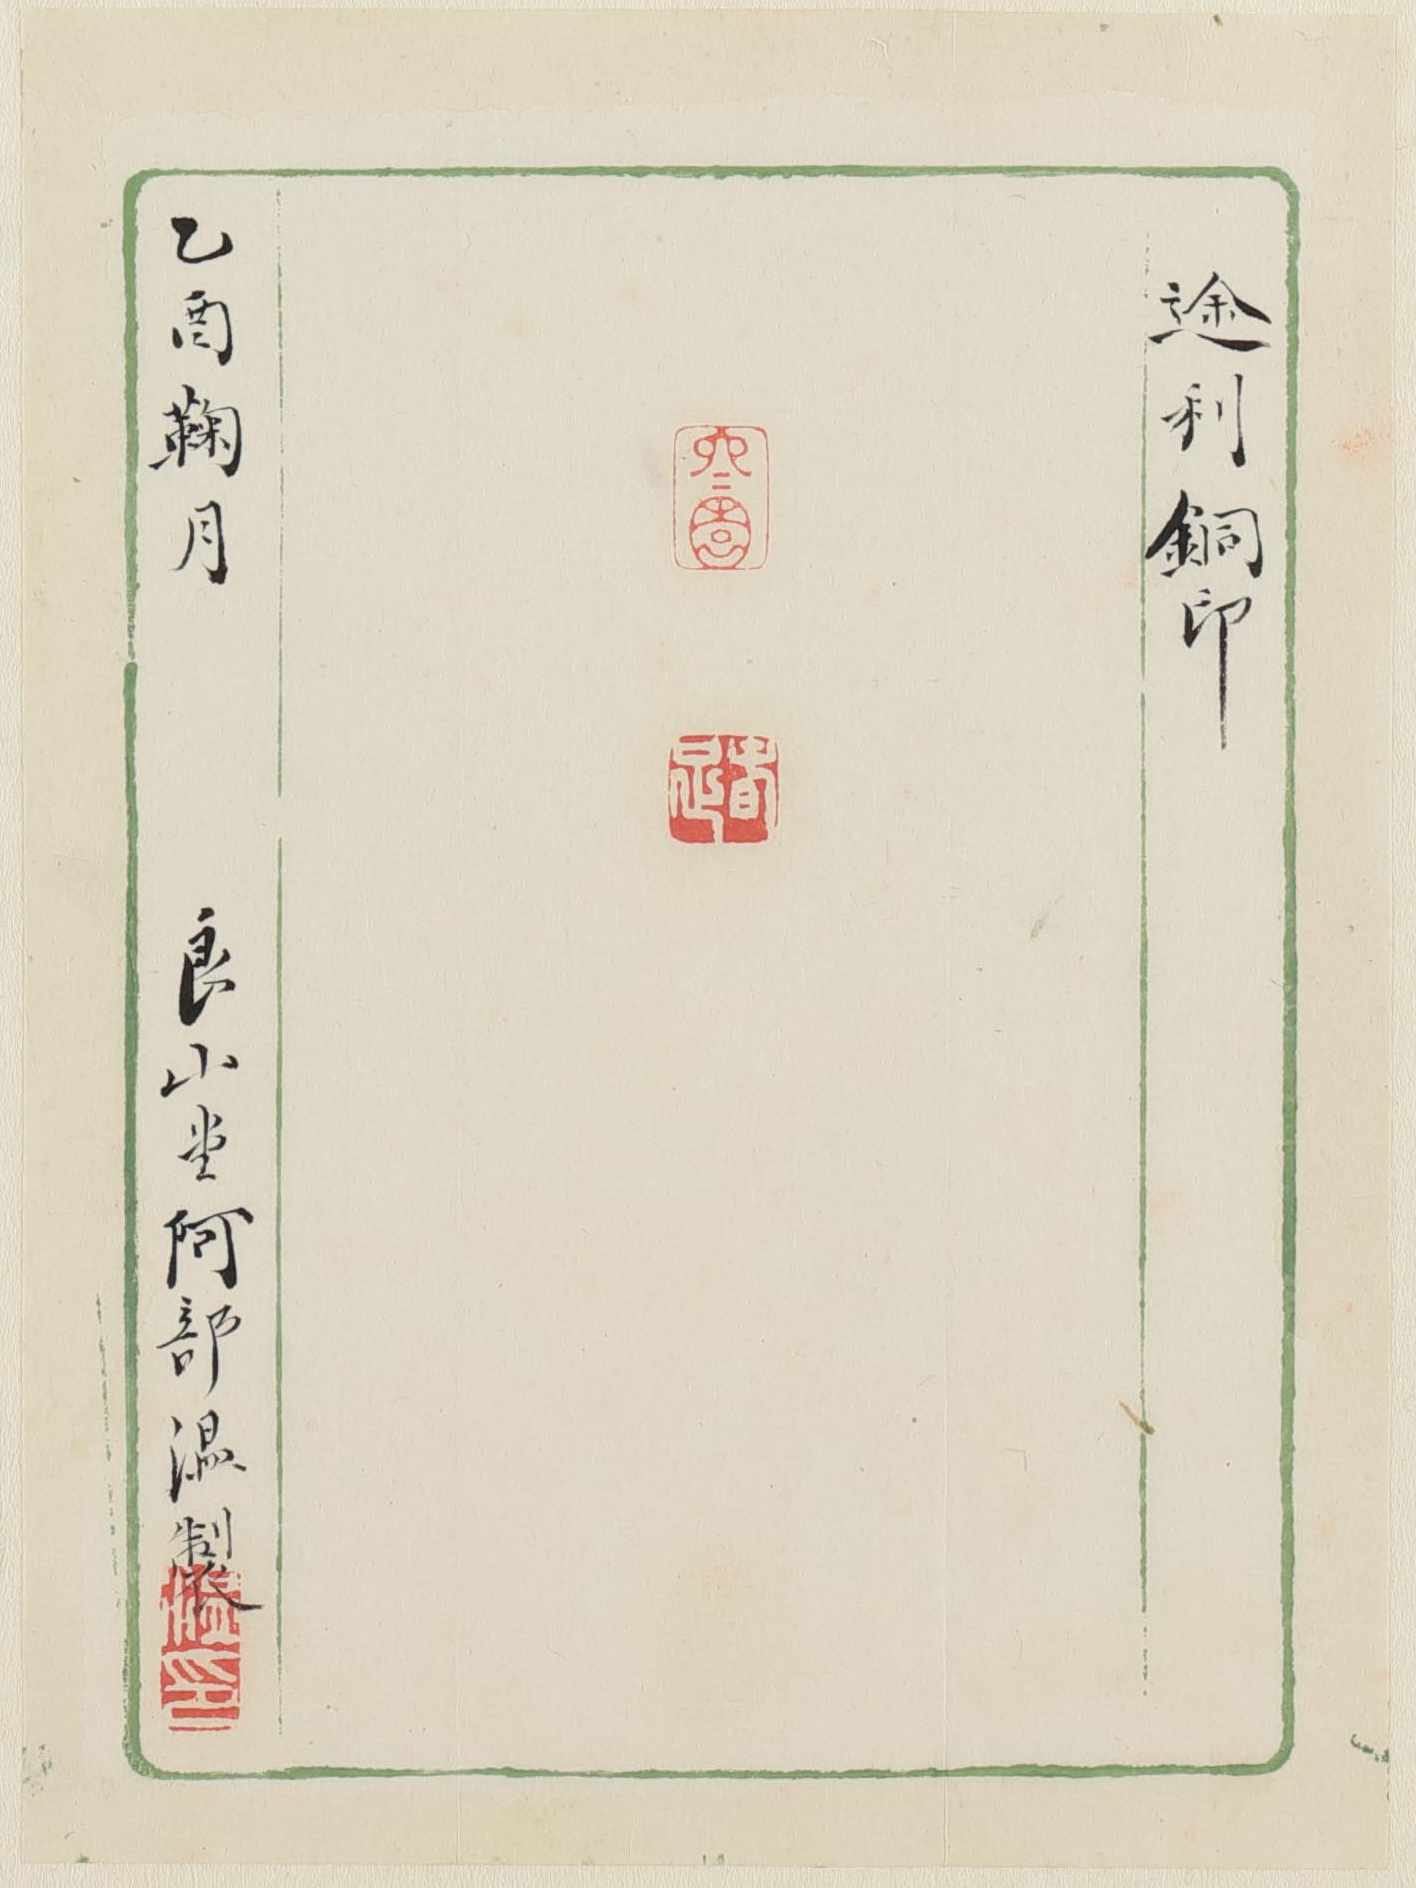 途利銅印
乙酉鞠月
良山堂阿部温製